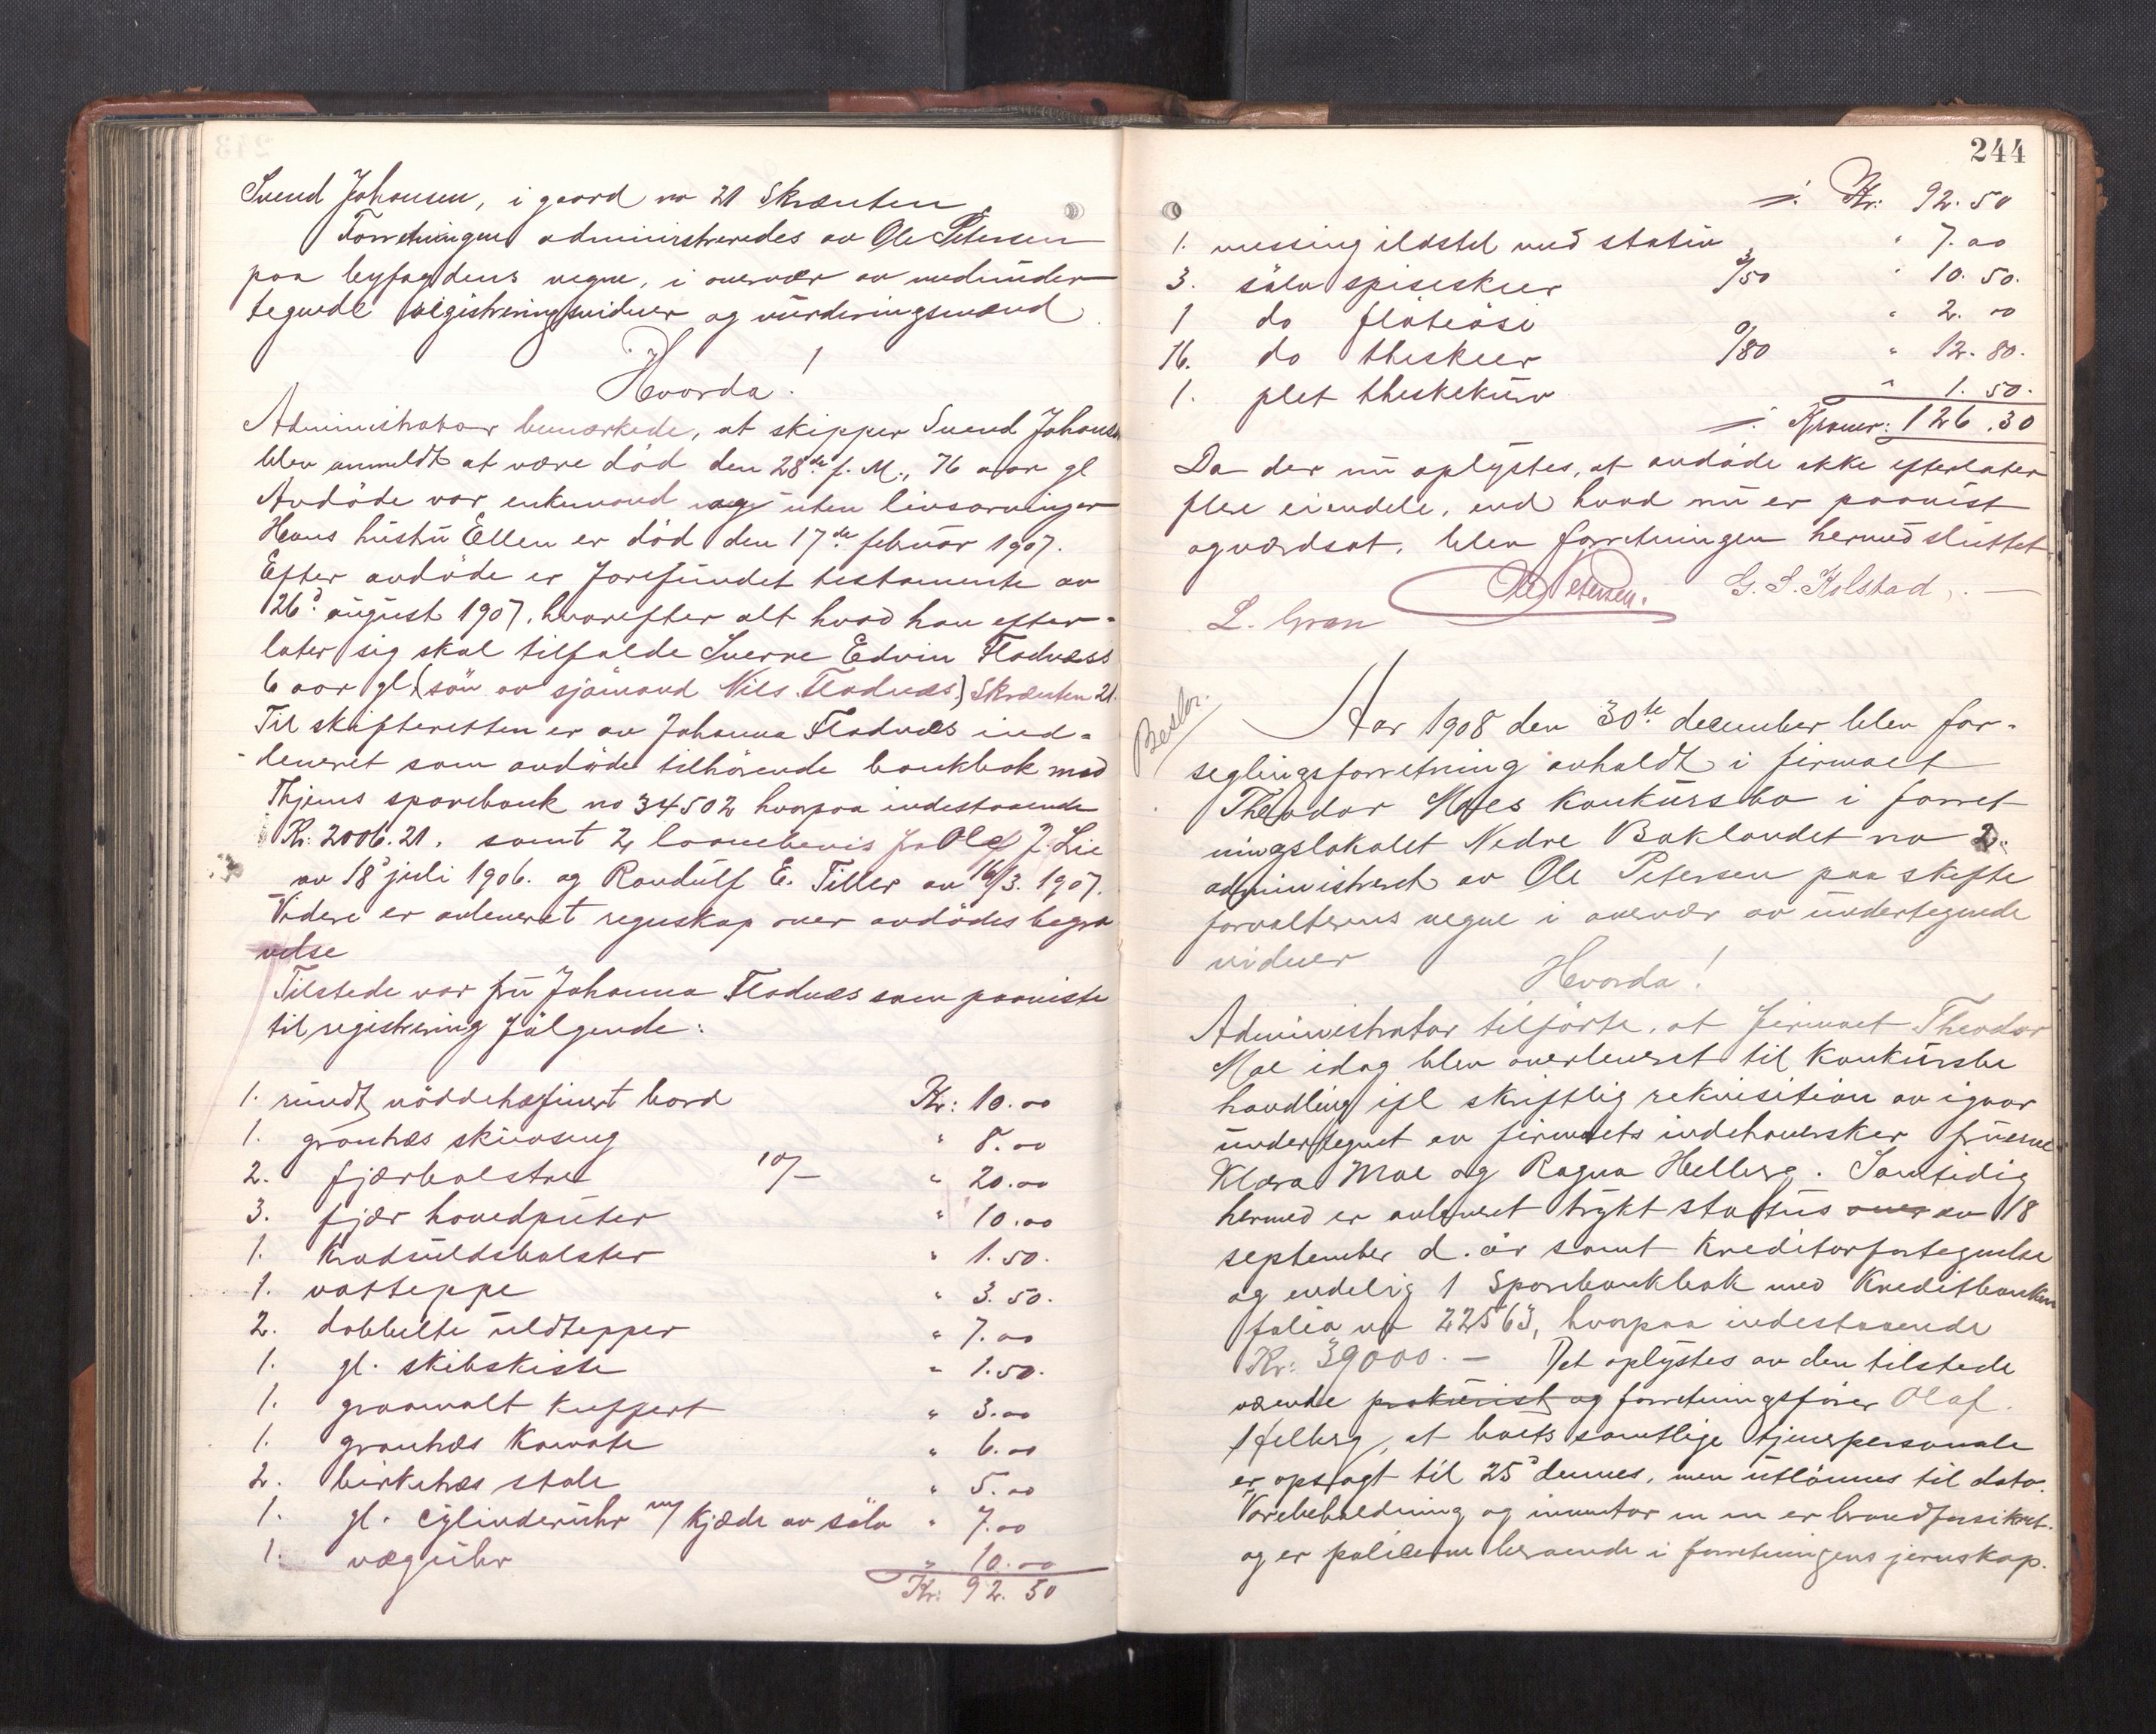 Svend Johansen, i gaard no 21 Skrænten.
Forretningen administreredes av Ole Petersen
paa byfogdens vegne, i overvær av medunder-
tegnede registreringsvidner og vurderingsmænd.
Hvorda!
Administrator bemærkede, at skipper Svend Johansen
blev anmeldt at være död den 28de f. M., 76 aar gl
Avdöde var enkemand og uten livsarvinger
Hans hustru Ellen er död den 17de februar 1907.
Efter avdöde er forefundet testamente av
26d august 1907, hvorefter alt hvad han efter-
later sig skal tilfalde Sverre Edvin Fladnæss
6 aar gl. (sön av sjömand Nils Fladnæs) Skrænten 21.
Til skifteretten er av Johanna Fladnæs ind-
leveret som avdöde tilhörende bankbok med
Thjems sparebank no 34502 hvorpaa indestaaende
Kr: 2006.21. samt 2 laanebevis fra Ole J. Lie
av 18d juli 1906. og Randulf E. Tiller av 16/3. 1907.
Videre er avleveret regnskap over avdödes begra
velse
Tilstede var fru Johanna Fladnæs som paaviste
til registrering fölgende:
1. rundt nöddetræfinert bord Kr: 10.00
1. grantræs skuvseng " 8.00
2. fjærbolstre 10/- " 20.00
3. fjær hovedputer " 10.00
1. Krøduldsbolster " 1.50.
1. vatteppe " 3.50.
2. dobbelte uldtepper " 7.00
1. gl. skibskiste " 1.50.
1. graamalt kuffert " 3.00
1. grantræs Komode " 6.00
2. birketræs stole " 5.00
1. gl. cylinderuhr m/ kjæde av sölv " 7.00
1. væguhr " 10.00
Kr: 92.50
244
Kr: 92.50
1. messing ildstel med stativ " 7.00
3. sölv spiseskeer 3/50 " 10.50.
1 do flöteöse " 2.00
16. do theskeer 0/80 " 12.80.
1. plet theskekurv " 1.50.
Kroner: 126.30
Da der nu oplystes, at avdöde ikke efterlater
flere eiendele, end hvad nu er paavist
og værdsat, blev forretningen hermed sluttet.
Ole Petersen. G. S. Kolstad.
L. Gran
Aar 1908 den 30te december blev for-
seglingsforretning avholdt i firmaet
Theodor Moes Konkursbo i forret
ningslokalet Nedre Baklandet no 2.
administreret av Ole Petersen paa skifte
forvalterens vegne i overvær av undertegnede
vidner
Hvorda!
Administrator tilförte, at firmaet Theodor
Moe idag blev overleveret til Konkursbe
handling ifl skriftlig rekvisition av igaar
undertegnet av firmaets indehaversker fruerne
Klara Moe og Ragna Hellberg. Samtidig
hermed er avleveret trykt status over av 18
september d. år samt Kreditorfortegnelse
og endelig 1 Sparebankbok med Kreditbanken
folio no 22563, hvorpaa indestaaende
Kr: 39000.- Det oplystes av den tilstede
værende prokurist og forretningsförer Olaf
Hellberg, at boets samtlige tjenerpersonale
er opsagt til 25d dennes, men utlönnes til dato.
Varebeholdning og inventar m m er brandforsikret.
og er policerne beroende i forretningens jernskap.